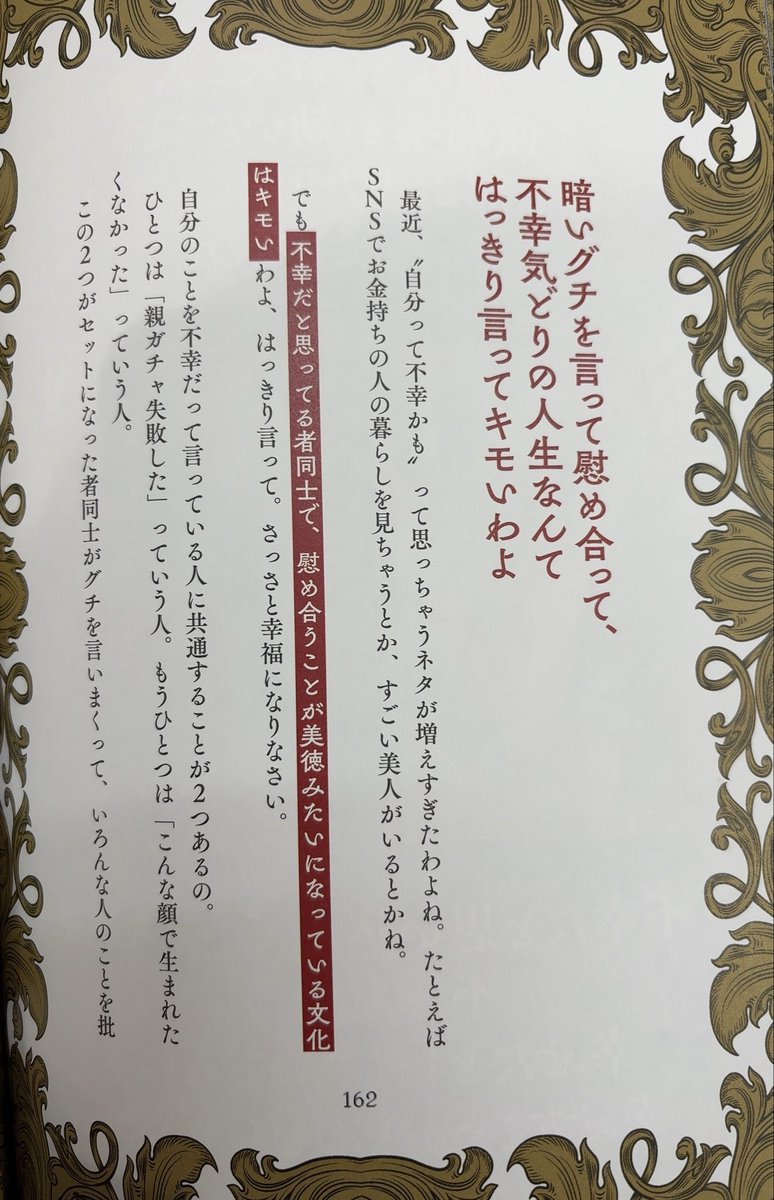 暗いグチを言って慰め合って、
不幸気どりの人生なんて
はっきり言ってキモいわよ
最近、〝自分って不幸かも〟って思っちゃうネタが増えすぎたわよね。たとえば
SNSでお金持ちの人の暮らしを見ちゃうとか、すごい美人がいるとかね。
でも不幸だと思ってる者同士で、慰め合うことが美徳みたいになっている文化
はキモいわよ、はっきり言って。さっさと幸福になりなさい。
自分のことを不幸だって言っている人に共通することが2つあるの。
ひとつは「親ガチャ失敗した」っていう人。もうひとつは「こんな顔で生まれた
くなかった」っていう人。
この2つがセットになった者同士がグチを言いまくって、いろんな人のことを批
162